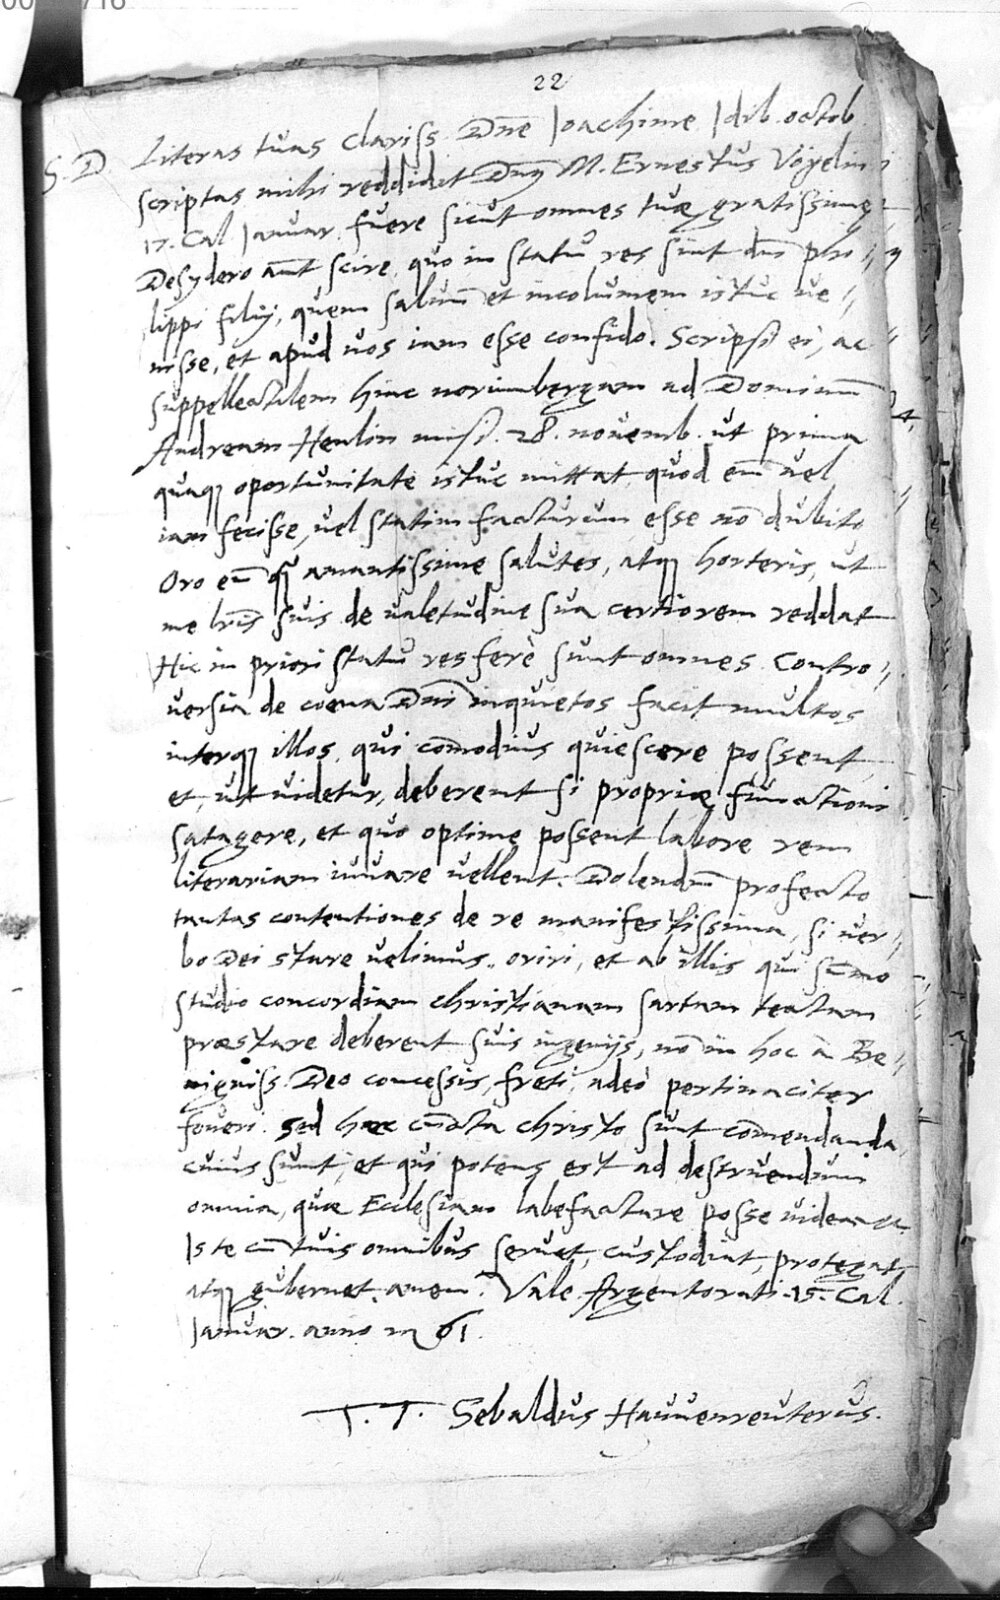 22
S. D. Literas tuas clariss. Dne Ioachime Idib. octob
scriptas mihi reddidit Dnus M. Ernestus Vögelin
17. Cal Ianuar. fuere sicut omnes tuæ gratissimę
Desydero aut scire, quo in statu res sint dni phi//
lippi filij, quem saluum et incolumem istuc ue//
nisse, et apud uos iam esse confido. Scripsi ei, ac
suppellectilem hinc norimbergam ad Dominum
Andream Henlin misi. 28. nouemb. ut prima
quaque oportunitate istuc mittat, quod eum uel
iam fecisse, uel statim facturum esse no dubito
Oro eum quam amantissime salutes, atque horteris, ut
me lris suis de ualetudine sua certiorem reddat
Hic in priori statu res ferè sunt omnes. Contro//
uersia de coena Dni inquietos facit multos
interque illos, qui comodius quiescere possent,
et, ut uidetur, deberent si propriæ functioni
satagere, et quo optime possent labore rem
literariam iuuare uellent. Dolendum profecto
tantas contentiones de re manifestissima, si uer//
bo Dei stare uelimus, oriri, et ab illis qui sumo
studio concordiam christianam sartam tectam
præstare deberent suis ingenijs, no in hoc à Be//
nigniss. Deo concessis, freti, adeò pertinaciter
foueri. Sed hæc cuncta christo sunt comendanda,
cuius sunt, et qui potens est ad destruendum
omnia, quæ Ecclesiam labefactare posse uideantur.
Is te cum tuis omnibus seruet, custodiat, protegat,
atque gubernet. amen. Vale Argentorati. 15. Cal.
Ianuar. anno 61.
T. T. Sebaldus Hauuenreuterus.